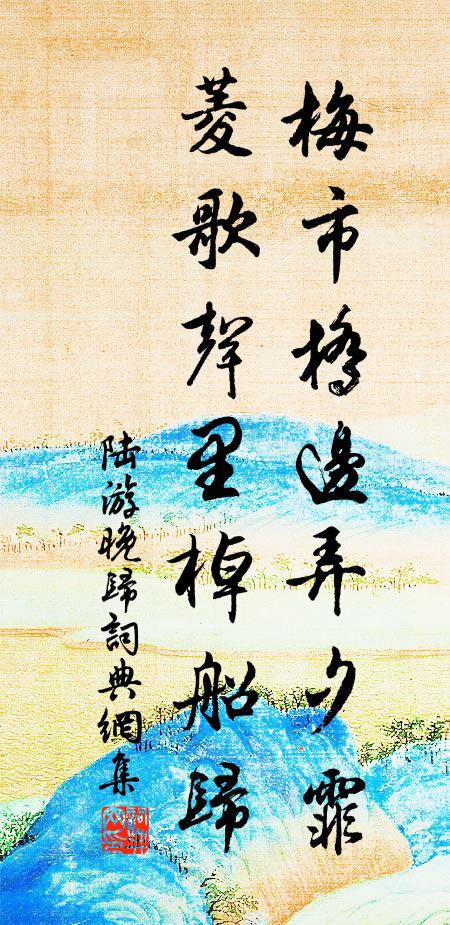 梅市橋邊弄夕霏
菱歌聲里棹船歸
陸游晚歸詞典網集